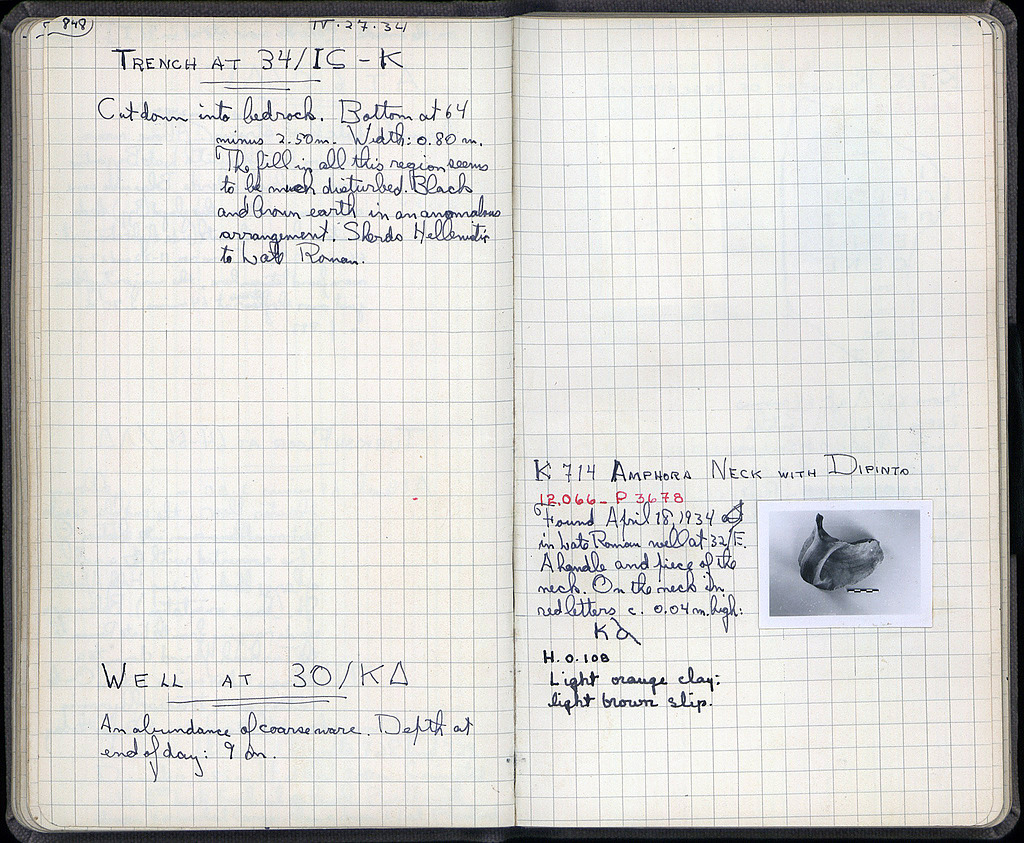 848
IV.27.34
TRENCH AT 34/IS - K
Cut down into bedrock. Bottom at 64
minus 2.50 m. Width: 0.80 m.
The fill in all this region seems
to be much disturbed. Black
and brown earth in an anomalous
arrangement. Sherds Hellenistic
to Late Roman.
WELL AT 30/ΚΔ
An abundance of coarse ware. Depth at
end of day: 9 m.
K 714 AMPHORA NECK WITH DIPINTO
12.066 - P 3678
Found April 18, 1934
in Late Roman well at 32/E.
A handle and piece of the
neck. On the neck in
red letters c. 0.04 m. high:
H. 0.108
Light orange clay:
light brown slip.